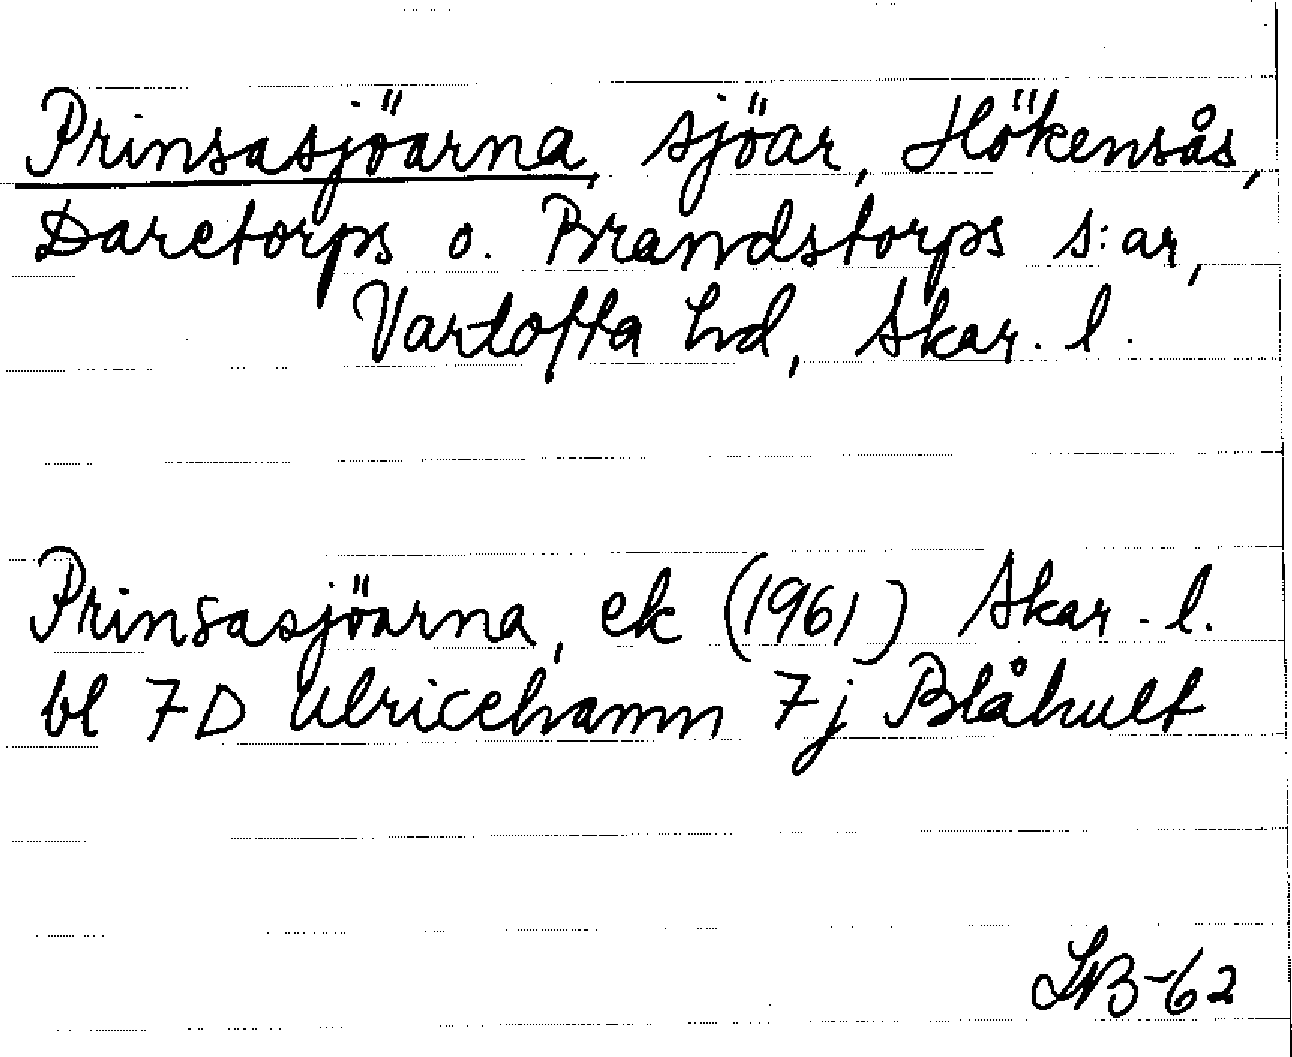 Prinsasjöarna, sjöar, Hökensås,
Daretorps o. Brandstorps s:ar,
Vartofta hd, Skar. l.
Prinsasjöarna, ek (1961) Skar. l.
bl 7D Ulricehamn 7j Blåhult
LB-62